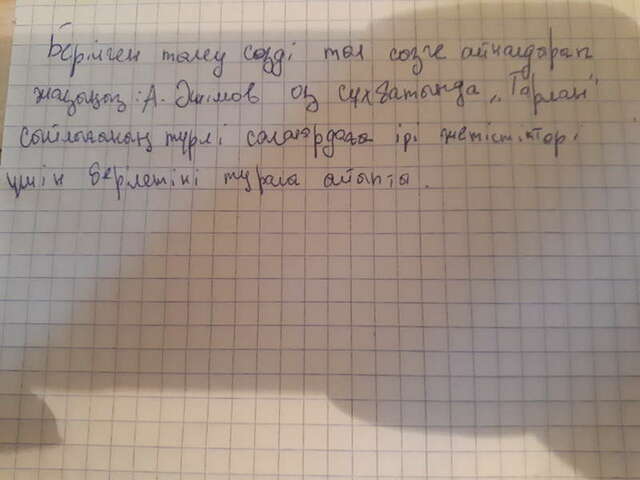 Берілген төлеу сөзді төл сөзге айналдырап
жазыңыз: А. Әшімов өз сұхбатында „Тарлан"
сыйлығының түрлі салалардағы ірі жетістіктері
үшін берілетіні турала айыпты.